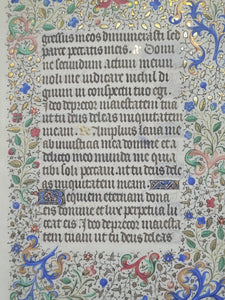 gressus meos dinumerasti sed
parce peccatis meis. Domi
ne secundum actum meum
noli me iudicare nichil dig
num in conspectu tuo egi.
Ideo deprecor maiestatem tuam
ut tu deus deleas iniquitatem
meam. Amplius laua me
ab iniusticia mea domine et a
delicto meo munda me quia
tibi soli peccaui. ut tu deus de
leas iniquitatem meam.
Requiem eternam dona
eis domine et lux perpetua lu
ceat eis. Ideo deprecor maiesta
tem tuam ut tu deus deleas